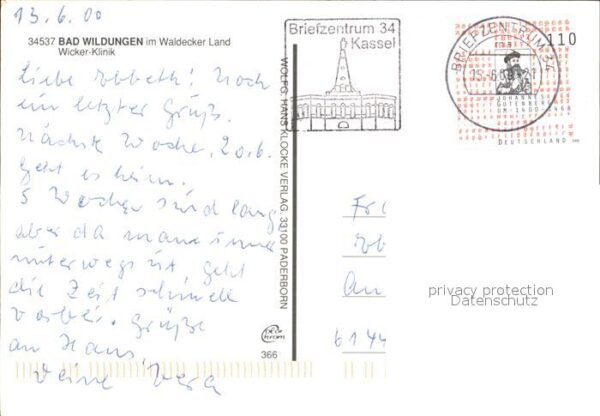 13.6.00
34537 BAD WILDUNGEN im Waldecker Land
Wicker-Klinik
Liebe Ebbeth! Noch
ein letzter Gruß.
Nächste Woche, 20.6.
geht es heim.
5 Wochen sind lang
aber da man immer
unterwegs ist, geht
die Zeit schnell
vorbei. Grüße
an Hans,
Deine Vera
WOLFG. HANS KLOCKE VERLAG. 33100 PADERBORN
366
Briefzentrum 34
Kassel
BRIEFZENTRUM 34
110
JOHANNES
GUTENBERG
UM
DEUTSCHLAND
Fr
An
614
privacy protection
Datenschutz